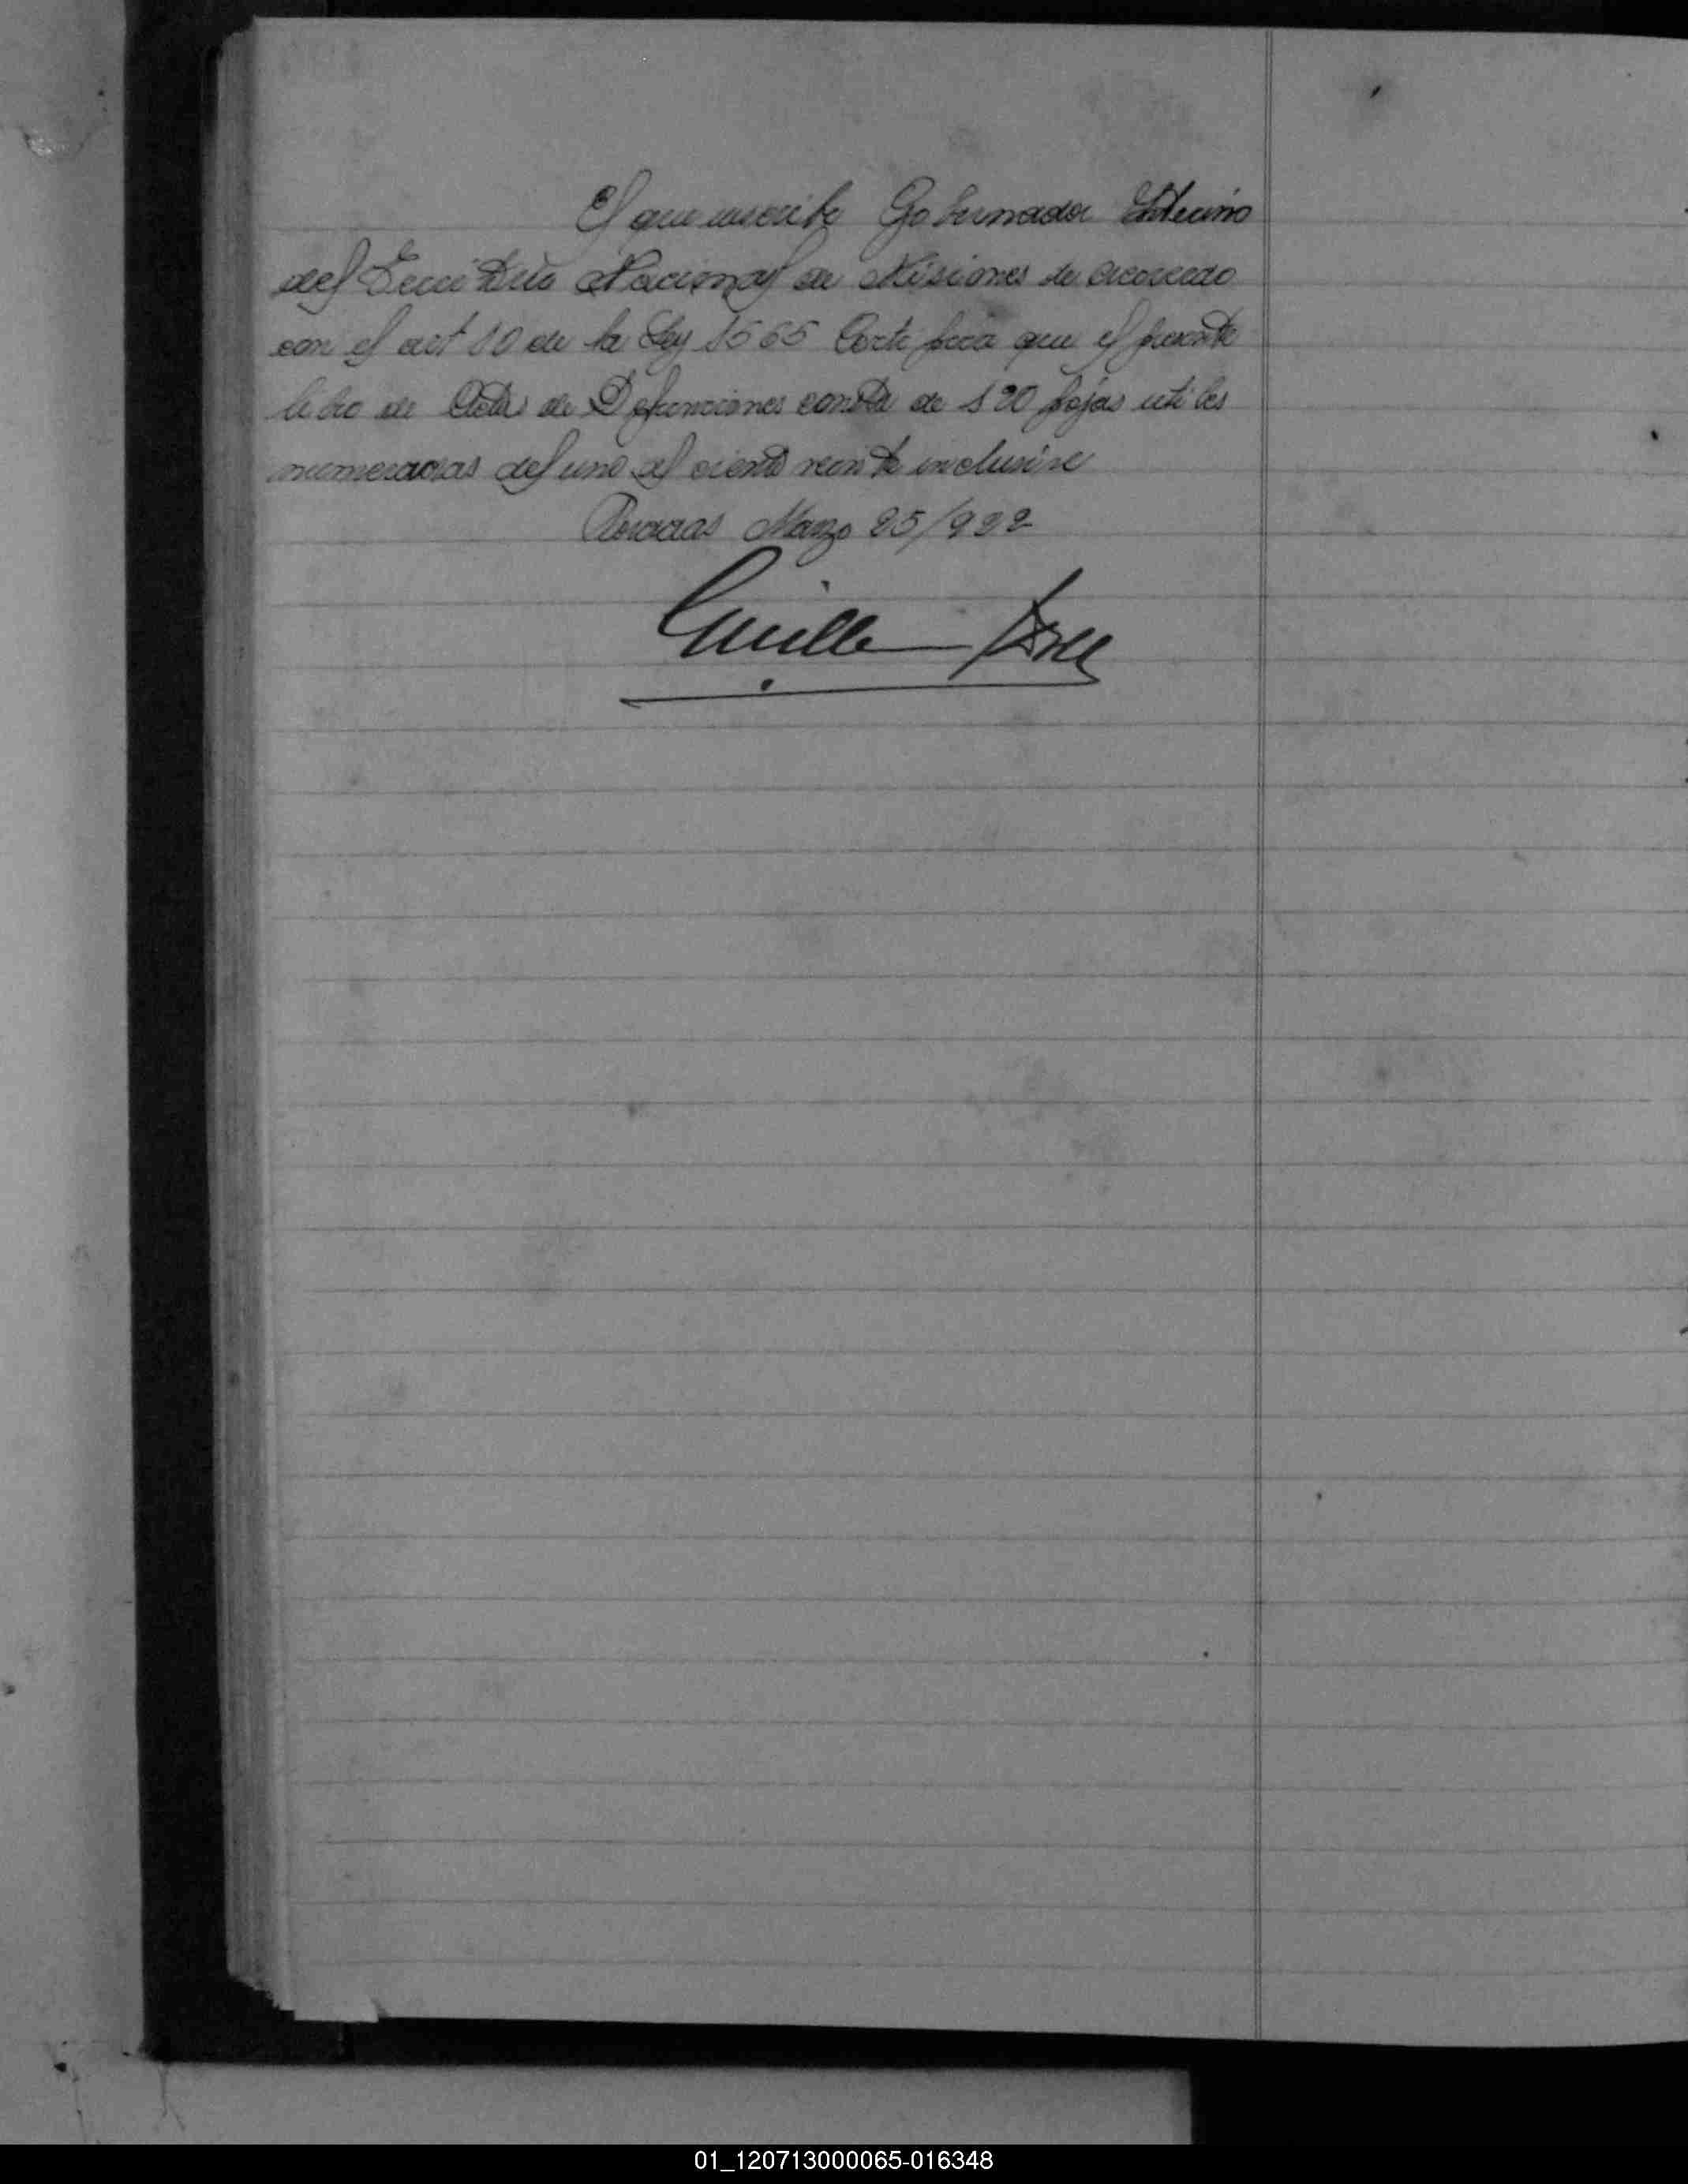 El que suscribe Gobernador Interino
del Territorio Nacional de Misiones de acuerdo
con el art 10 de la Ley 1565 Certifica que el presente
libro de Actas de Defunciones consta de 120 fojas utiles
numeradas del uno al ciento veinte inclusive
Posadas Marzo 25/922
01_120713000065-016348